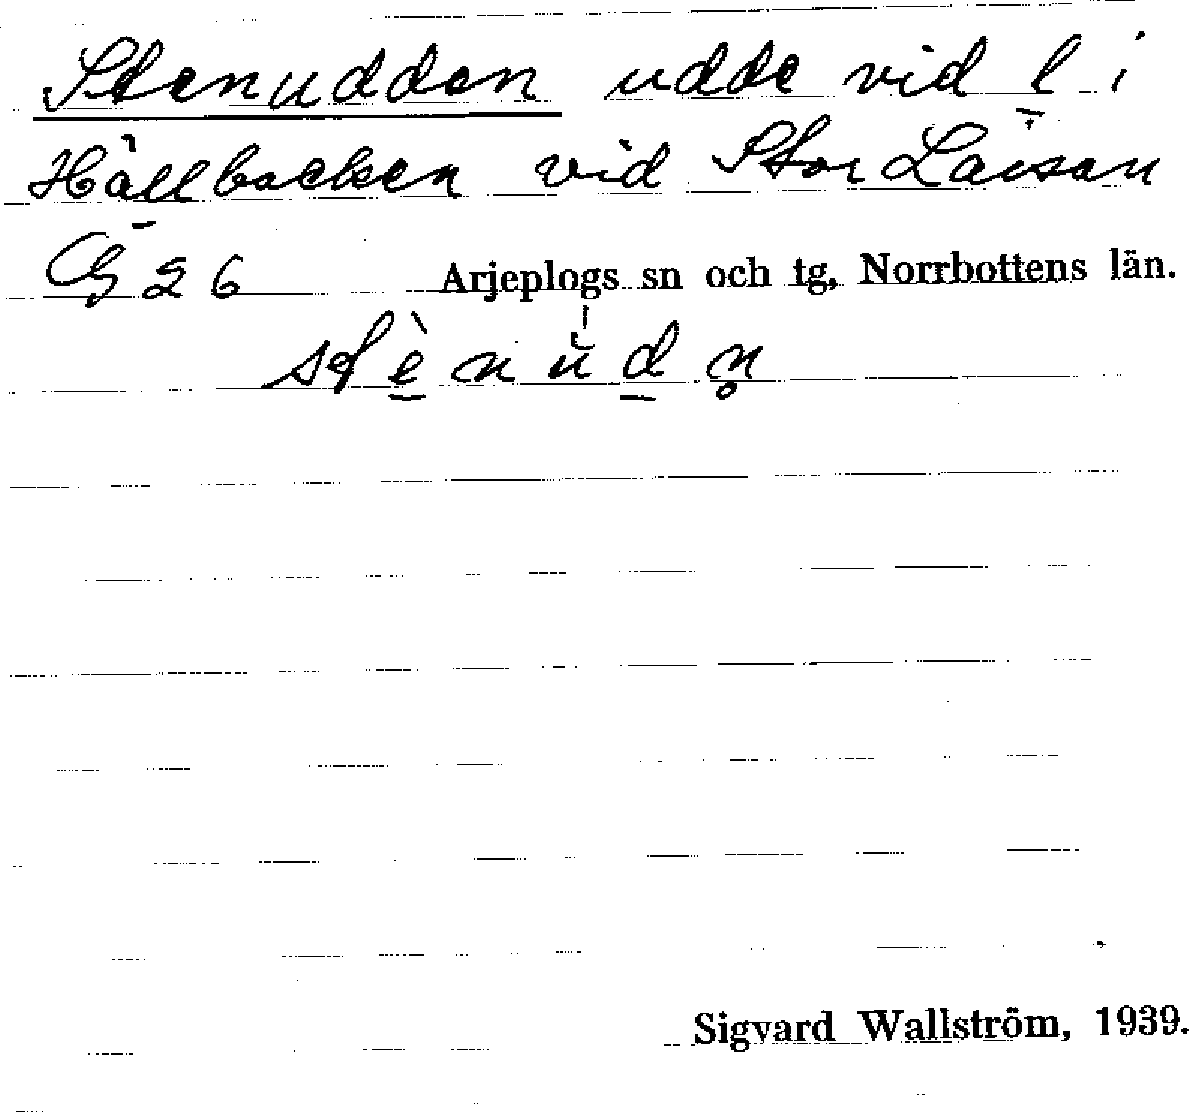 Stenudden udde vid l i
Hällbacken vid Stor Laisan
G 26 Arjeplogs sn och tg, Norrbottens län.
stènudn̥
Sigvard Wallström, 1939.